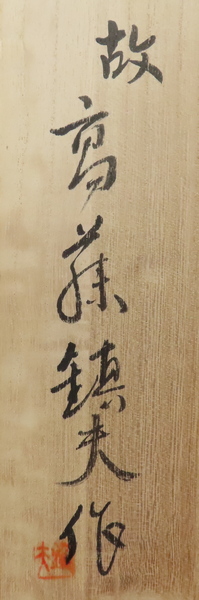 故高藤鎮夫作